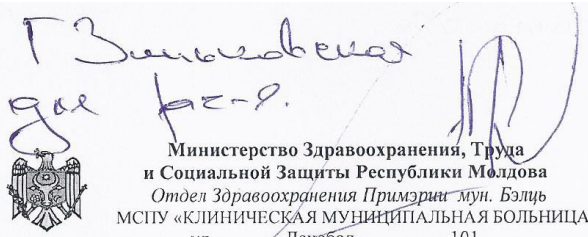 Г Зиньковская
для рас-я.
Министерство Здравоохранения, Труда
и Социальной Защиты Республики Молдова
Отдел Здравоохранения Примэрии мун. Бэлць
МСПУ «КЛИНИЧЕСКАЯ МУНИЦИПАЛЬНАЯ БОЛЬНИЦА
101